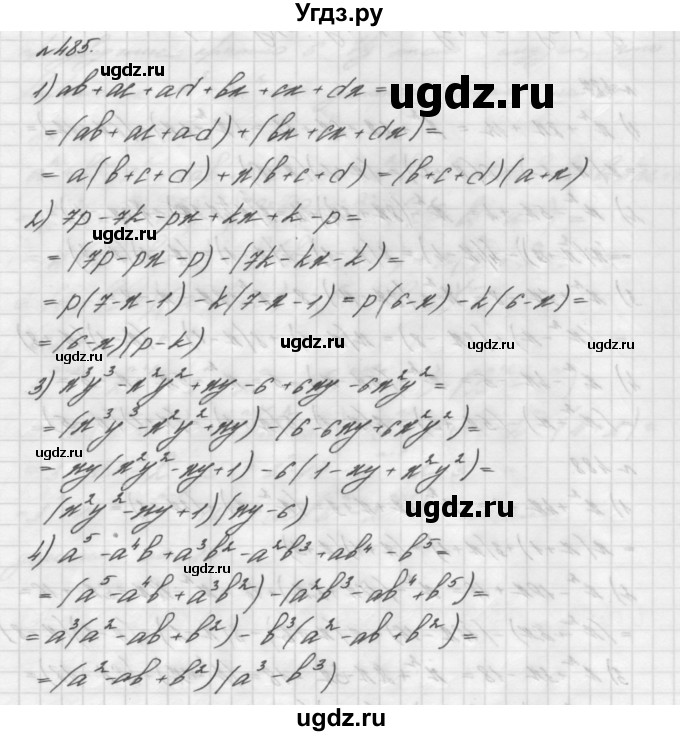 Угдз.ру
№485.
ugdz.ru
1) ab+ac+ad+bx+cx+dx=
ugdz.ru
=(ab+ac+ad)+(bx+cx+dx)=
=a(b+c+d)+x(b+c+d)=(b+c+d)(a+x)
2) 7p-7k-px+kx+k-p=
ugdz.ru
=(7p-px-p)-(7k-kx-k)=
=p(7-x-1)-k(7-x-1)=p(6-x)-k(6-x)=
=(6-x)(p-k)
ugdz.ru ugdz.ru ugdz.ru
ugdz.ru
3) x³y³-x²y²+xy-6+6xy-6x²y²=
=(x³y³-x²y²+xy)-(6-6xy+6x²y²)=
ugdz.ru
=xy(x²y²-xy+1)-6(1-xy+x²y²)=
(x²y²-xy+1)(xy-6)
ugdz.ru
4) a⁵-a⁴b+a³b²-a²b³+ab⁴-b⁵=
ugdz.ru
=(a⁵-a⁴b+a³b²)-(a²b³-ab⁴+b⁵)=
=a³(a²-ab+b²)-b³(a²-ab+b²)=
=(a²-ab+b²)(a³-b³)
ugdz.ru